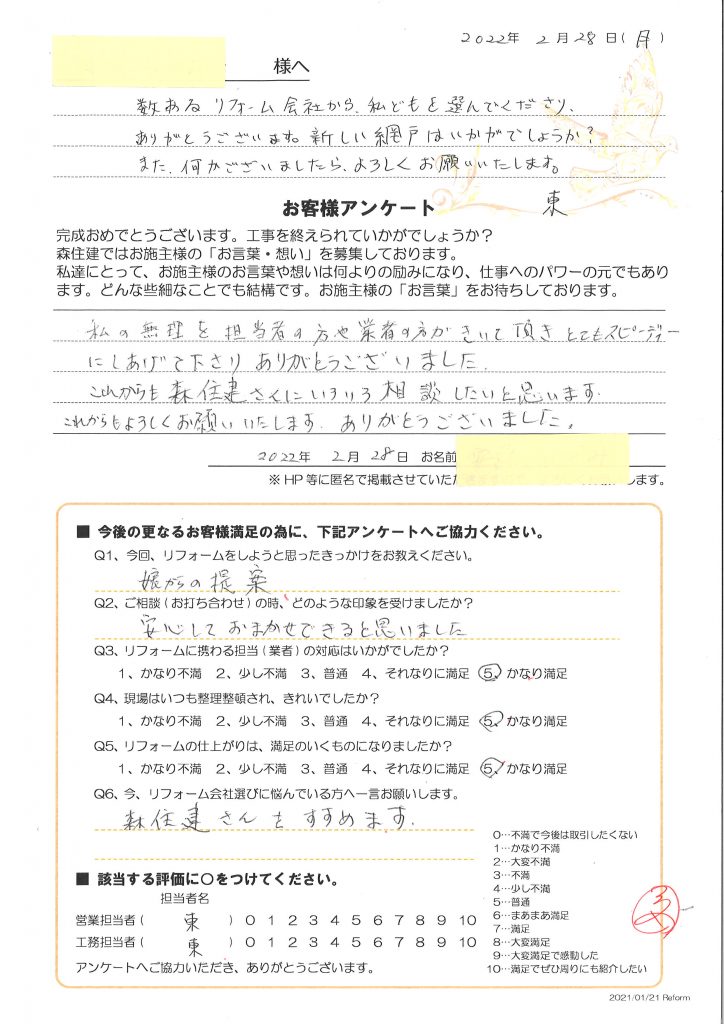 2022年 2月 28日(月)
様へ
数ある リフォーム会社から、私どもを選んでくださり、
ありがとうございます。新しい網戸はいかがでしょうか?
また、何かございましたら、よろしくお願いいたします。
東
お客様アンケート
完成おめでとうございます。工事を終えられていかがでしょうか?
森住建ではお施主様の「お言葉・想い」を募集しております。
私達にとって、お施主様のお言葉や想いは何よりの励みになり、仕事へのパワーの元でもあり
ます。どんな些細なことでも結構です。お施主様の「お言葉」をお待ちしております。
私の無理を担当者の方や業者の方がきいて頂きとてもスピーディー
にしあげて下さり ありがとうございました.
これからも 森住建さんにいろいろ相談したいと思います.
これからもよろしくお願いいたします. ありがとうございました。
2022年 2月 28日 お名前
※HP等に匿名で掲載させていただ
します。
■ 今後の更なるお客様満足の為に、下記アンケートへご協力ください。
Q1、今回、リフォームをしようと思ったきっかけをお教えください。
娘からの提案
Q2、ご相談(お打ち合わせ)の時、どのような印象を受けましたか?
安心して おまかせできると思いました
Q3、リフォームに携わる担当(業者)の対応はいかがでしたか?
1、かなり不満 2、少し不満 3、普通 4、それなりに満足 5、かなり満足
Q4、現場はいつも整理整頓され、きれいでしたか?
1、かなり不満 2、少し不満 3、普通 4、それなりに満足 5、かなり満足
Q5、リフォームの仕上がりは、満足のいくものになりましたか?
1、かなり不満 2、少し不満 3、普通 4、それなりに満足 5、かなり満足
Q6、今、リフォーム会社選びに悩んでいる方へ一言お願いします。
森住建さんをすすめます.
■ 該当する評価に○をつけてください。
担当者名
営業担当者( 東 ) 0 1 2 3 4 5 6 7 8 9 10
工務担当者( 東 ) 0 1 2 3 4 5 6 7 8 9 10
アンケートへご協力いただき、ありがとうございます。
0…不満で今後は取引したくない
1…かなり不満
2…大変不満
3…不満
4…少し不満
5…普通
6…まあまあ満足
7…満足
8…大変満足
9…大変満足で感動した
10…満足でぜひ周りにも紹介したい
2021/01/21 Reform